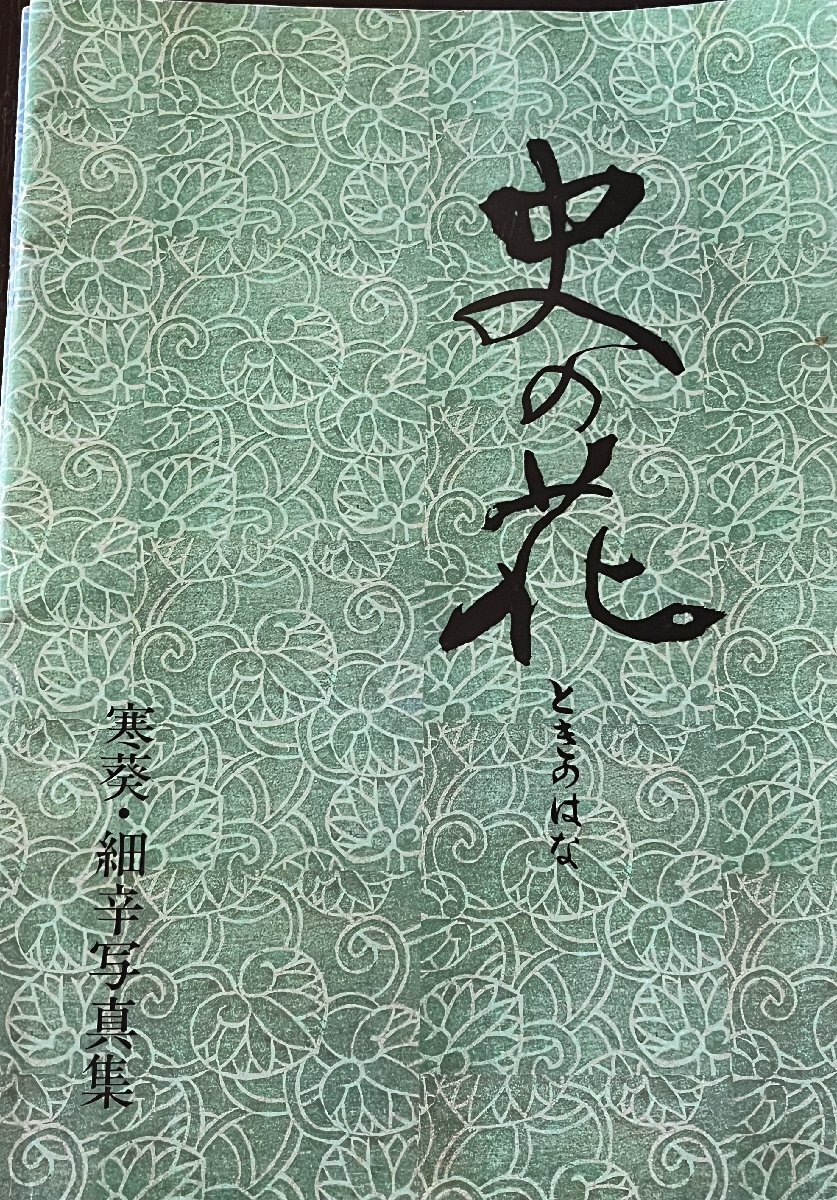 史の花
ときのはな
寒葵・細辛写真集